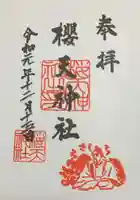 奉拝
櫻天神社
令和元年十二月十五日